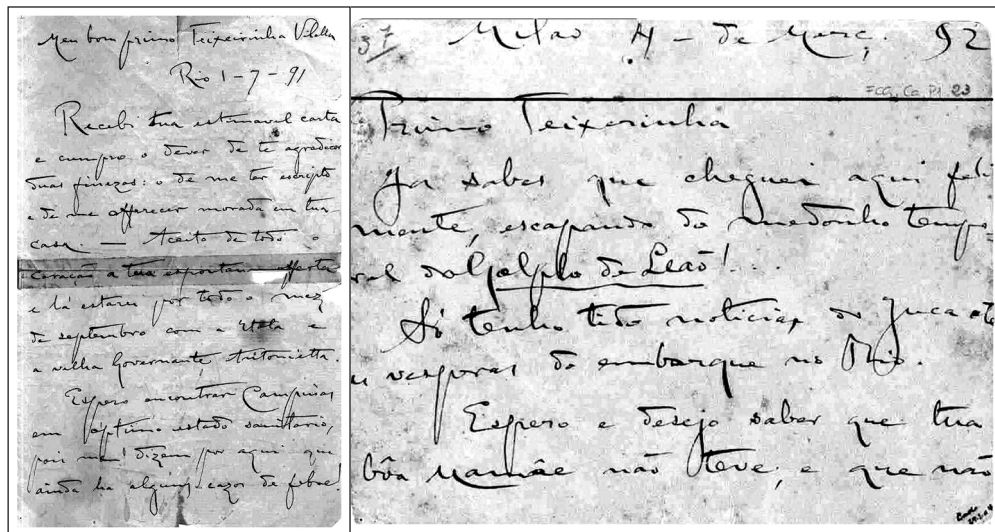 Meu bom primo Teixeirinha Vilella
Rio 1-7-91
Recebi tua estimavel carta
e cumpro o dever de te agradecer
duas finezas: o de me ter escripto
e de me offerecer morada em tua
casa. — Aceito de todo o
coração a tua espontanea offerta
e lá estarei por todo o mez
de septembro com a Itala e
a velha Governante, Antonietta.
Espero encontrar Campinas
em óptimo estado sanitario,
pois me dizem por aqui que
ainda ha alguns cazos de febre!
37
Milão 4 - de Març. 92
=CG, Ca, P1 23
Primo Teixeirinha
Ja sabes que cheguei aqui feliz
mente, escapando do medonho tempo-
ral do Golpho de Leão!...
Só tenho tido noticias do Juca até
vesperas do embarque no Rio.
Espero e desejo saber que tua
bôa Mamãe não teve, e que não